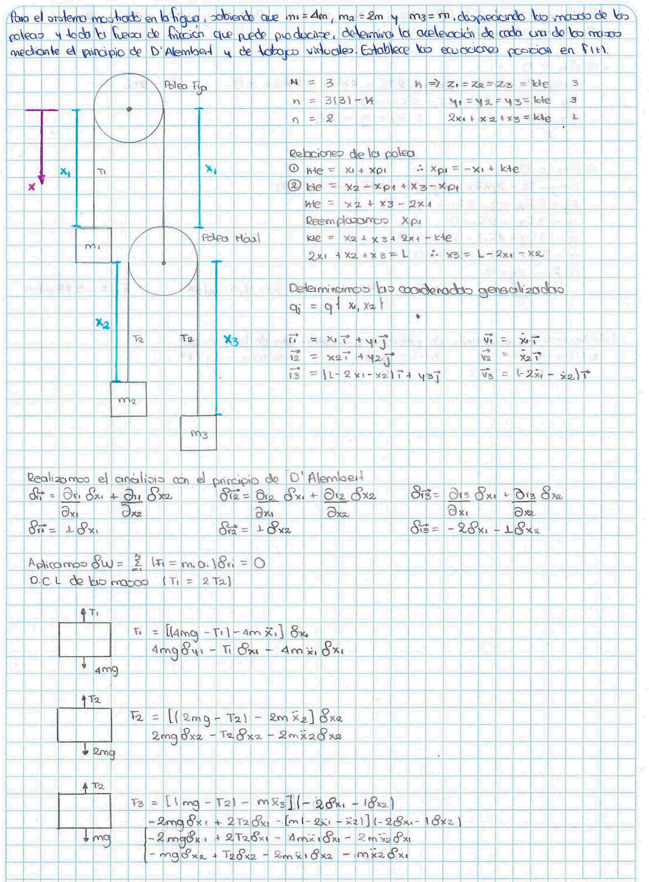 Para el sistema mostrado en la figura, sabiendo que m1=4m, m2=2m y m3=m, despreciando las masas de las
poleas y toda la fuerza de fricción que puede producirse, determina la aceleración de cada una de las masas
mediante el principio de D'Alembert y de trabajos virtuales. Establece las ecuaciones posición en f(t).
Polea Fija
N = 3
n = 3(3) - K
n = 2
K ⇒ z1 = z2 = z3 = kte 3
y1 = y2 = y3 = kte 3
2x1 + x2 + x3 = kte 1
x
x1
T1
x1
m1
Polea Móvil
x2
T2
T2
x3
m2
m3
Relaciones de la polea
① kte = x1 + xp1 ∴ xp1 = -x1 + kte
② kte = x2 - xp1 + x3 - xp1
kte = x2 + x3 - 2x1
Reemplazamos xp1
kte = x2 + x3 + 2x1 - kte
2x1 + x2 + x3 = L ∴ x3 = L - 2x1 - x2
Determinamos las coordenadas generalizadas
qj = q{x1, x2}
r1 = x1 i + y1 j v1 = ẋ1 i
r2 = x2 i + y2 j v2 = ẋ2 i
r3 = (L - 2x1 - x2) i + y3 j v3 = (-2ẋ1 - ẋ2) i
Realizamos el análisis con el principio de D'Alembert
δr1 = ∂r1/∂x1 δx1 + ∂r1/∂x2 δx2 δr2 = ∂r2/∂x1 δx1 + ∂r2/∂x2 δx2 δr3 = ∂r3/∂x1 δx1 + ∂r3/∂x2 δx2
δr1 = 1δx1 δr2 = 1δx2 δr3 = -2δx1 - 1δx2
Aplicamos δW = Σ (Fi = m.ai) δri = 0
D.C.L de las masas (T1 = 2T2)
T1
4mg
F1 = [(4mg - T1) - 4mẍ1] δx1
4mgδy1 - T1 δx1 - 4mẍ1 δx1
T2
2mg
F2 = [(2mg - T2) - 2mẍ2] δx2
2mgδx2 - T2δx2 - 2mẍ2δx2
T2
mg
F3 = [(mg - T2) - mẍ3](-2δx1 - 1δx2)
-2mgδx1 + 2T2δx1 - [m(-2ẍ1 - ẍ2)](-2δx1 - 1δx2)
-2mgδx1 + 2T2δx1 - 4mẍ1δx1 - 2mẍ2δx1
-mgδx2 + T2δx2 - 2mẍ1δx2 - mẍ2δx1